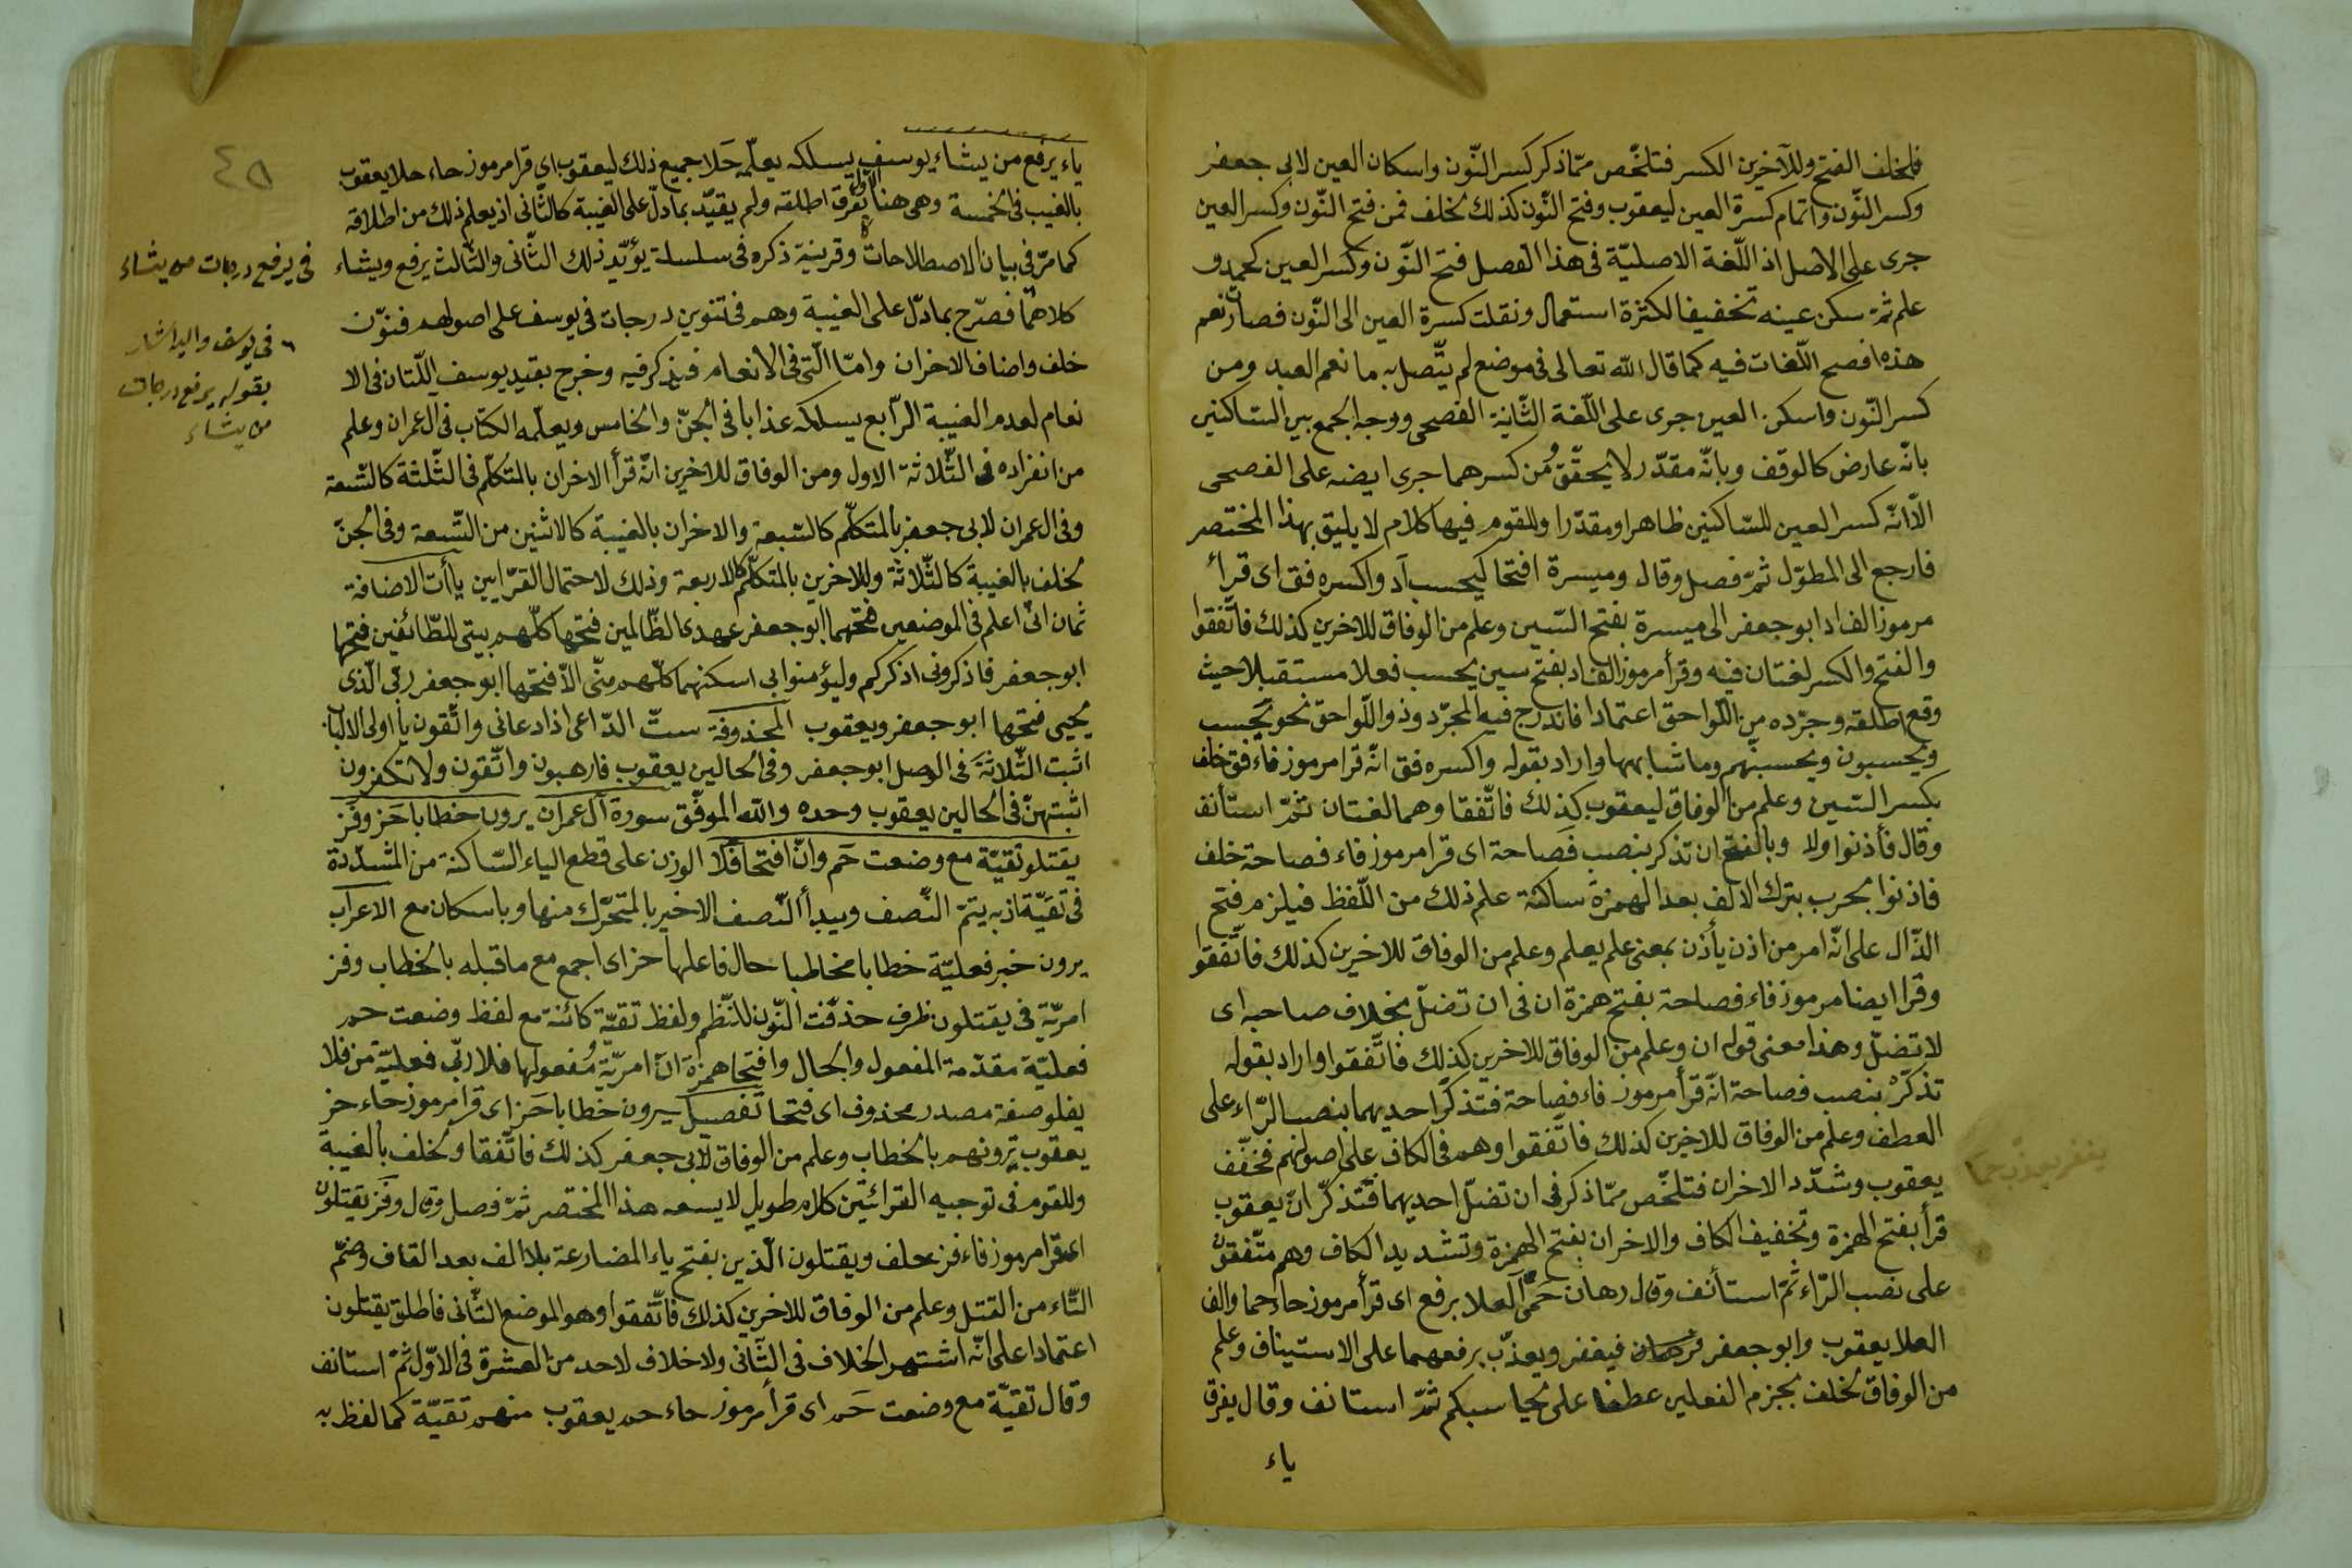 فلخلف الفتح وللآخرين الكسر فتلخّص ممّا ذكر كسر النّون واسكان العين لابى جعفر
وكسر النّون واتمام كسرة العين ليعقوب وفتح النّون كذلك لخلف فمن فتح النّون وكسر العين
جرى على الاصل اذ اللّغة الاصليّة فى هذا الفصل فتح النّون وكسر العين كحمد و
علم ثمّ سكن عينه تخفيفا لكثرة استعمال ونقلت كسرة العين الى النّون فصار نعم
هذه افصح اللّغات فيه كما قال الله تعالى فى موضع لم يتّصل به ما نعم العبد ومن
كسر النّون واسكن العين جرى على اللّغة الثّانية الفصحى ووجه الجمع بين السّاكنين
بانّه عارض كالوقف وبانّه مقدّر لا يحقّق ومن كسرهما جرى ايضه على الفصحى
الّا انّه كسر العين للسّاكنين ظاهرا ومقدّرا وللقوم فيها كلام لا يليق بهذا المختصر
فارجع الى المطوّل ثمّ فصل وقال وميسرة افتحا كيحسب اد واكسره فق اى قرأ
مرموز الف اد ابو جعفر الى ميسرة بفتح السّين وعلم من الوفاق للاخرين كذلك فاتّفقوا
والفتح والكسر لغتان فيه وقرأ مرموز الف اد بفتح سين يحسب فعلا مستقبلا حيث
وقع اطلقه وجرّده من اللّواحق اعتمادا فاندرج فيه المجرّد وذو اللّواحق نحو يحسب
ويحسبون ويحسبنّهم وما شابهها واراد بقوله واكسره فق انّه قرا مرموز فاء فق خلف
بكسر السّين وعلم من الوفاق ليعقوب كذلك فاتّفقا وهما لغتان ثمّ استأنف
وقال فأذنوا ولا وبالفتح ان تذكر بنصب فصاحة اى قرا مرموز فاء فصاحة خلف
فاذنوا بحرب بترك الالف بعد الهمزة ساكنة علم ذلك من اللّفظ فيلزم فتح
الذّال على انّه امر من اذن يأذن بمعنى علم يعلم وعلم من الوفاق للاخرين كذلك فاتّفقوا
وقرا ايضا مرموز فاء فصاحة بفتح همزة ان فى ان تضلّ بخلاف صاحبه اى
لا تضلّ وهذا معنى قوله ان وعلم من الوفاق للاخرين كذلك فاتّفقوا واراد بقوله
تذكر بنصب فصاحة انّه قرأ مرموز فاء فصاحة فتذكّر احديهما بنصب الرّاء على
العطف وعلم من الوفاق للاخرين كذلك فاتّفقوا وهم فى الكاف على اصولهم فخفّف
يعقوب وشدّد الاخران فتلخّص ممّا ذكر فى ان تضلّ احديهما فتذكّر انّ يعقوب
قرأ بفتح الهمزة وتخفيف الكاف والاخران بفتح الهمزة وتشديد الكاف وهم متّفقون
على نصب الرّاء ثمّ استأنف وقال رهان حمى العلا برفع اى قرأ مرموز حاء حما والف
العلا يعقوب وابو جعفر فرهان فيغفر ويعذّب برفعهما على الاستيناف وعلم
من الوفاق لخلف بجزم الفعلين عطفا على يحاسبكم ثمّ استانف وقال يفرق
ياء
يغفر يعذب حما
ياء يرفع من يشاء يوسف يسلكه يعلّمه حَلا جميع ذلك ليعقوب اى قرا مرموز حاء حلا يعقوب
بالغيب فى الخمسة وهى هنا الاول يفرق اطلقه ولم يقيّد بما دلّ على الغيبة كالثّانى اذ يعلم ذلك من اطلاقه
كما مرّ فى بيان الاصطلاحات وقرينة ذكره فى سلسلة يؤيّد ذلك الثّانى والثّالث يرفع ويشاء
كلاهما فصرّح بما دلّ على الغيبة وهم فى تنوين درجات فى يوسف على اصولهم فنوّن
خلف واضاف الاخران وامّا الّتى فى الانعام فيذكر فيه وخرج بقيد يوسف اللّتان فى الا
نعام لعدم الغيبة الرّابع يسلكه عذابا فى الجنّ والخامس ويعلّمه الكتاب فى ال عمران وعلم
من انفراده فى الثّلاثة الاول ومن الوفاق للاخرين انّه قرأ الاخران بالتكلّم فى الثّلثة كالتّسعة
وفى ال عمران لابى جعفر بالمتكلّم كالسّبعة والاخران بالغيبة كالاثنين من السّبعة وفى الجنّ
لخلف بالغيبة كالثّلاثة وللاخرين بالمتكلّم كالاربعة وذلك لاحتمال القرّايين ياأت الاضافة
ثمان انّى اعلم فى الموضعين فتحهما ابو جعفر عهدى الظّالمين فتحها كلّهم بيتى للطّائفين فتحها
ابو جعفر فاذكرونى اذكركم وليؤمنوا بى اسكنهما كلّهم منّى الّا فتحها ابو جعفر ربّى الّذى
يحيى فتحها ابو جعفر ويعقوب المحذوفة ستّ الدّاعى اذا دعانى واتّقون يا اولى الالباب
اثبت الثّلاثة فى الوصل ابو جعفر وفى الحالين يعقوب فارهبون واتّقون ولا تكفرون
اثبتهنّ فى الحالين يعقوب وحده والله الموفّق سورة آل عمران يرون خطابا حَز وفَز
يقتلو تقيّة مع وضعت حَم وانّ افتحا فلا الوزن على قطع الياء السّاكنة من المشدّدة
فى تقيّة اذ به يتمّ النّصف ويبدأ النّصف الاخير بالمتحرّك منها وباسكان مع الاعراب
يرون خبر فعليّة خطابا مخاطبا حال فاعلها حز اى اجمع مع ما قبله بالخطاب وفز
امريّة فى يقتلون ظرف حذفت النّون للنّظم ولفظ تقيّة كائنة مع لفظ وضعت حم
فعليّة مقدّمة المفعول والحال وافتحا همزة انّ امريّة ومفعولها فلا ربّى فعليّة من فلا
يفلو صفة مصدر محذوف اى فتحا تفصيل يرون خطابا حَز اى قرا مرموز حاء حز
يعقوب ترونهم بالخطاب وعلم من الوفاق لابى جعفر كذلك فاتّفقا ولخلف بالغيبة
وللقوم فى توجيه القرائتين كلام طويل لا يسعه هذا المختصر ثمّ فصل وقال وفز يقتلون
اى قرا مرموز فاء فز خلف ويقتلون الّذين بفتح ياء المضارعة بلا الف بعد القاف وضمّ
التّاء من القتل وعلم من الوفاق للاخرين كذلك فاتّفقوا وهو الموضع الثّانى فاطلق يقتلون
اعتمادا على انّه اشتهر الخلاف فى الثّانى ولا خلاف لاحد من العشرة فى الاوّل ثمّ استانف
وقال تقيّة مع وضعت حَم اى قرأ مرموز حاء حم يعقوب منهم تقيّة كما لفظ به
٤٥
فى يرفع درجات من يشاء
فى يوسف واليه اشار
بقوله يرفع درجات
من يشاء